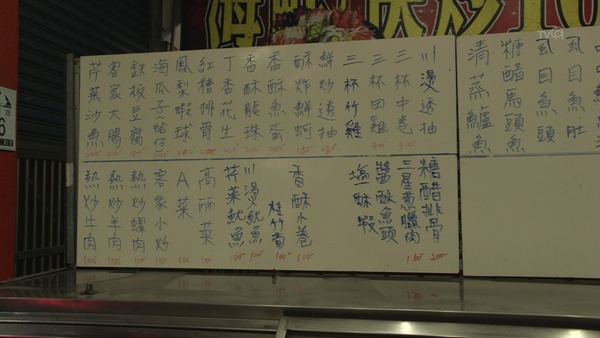 海鮮快炒10
虱目魚肚
虱目魚頭
糖醋馬頭魚
清蒸鱸魚
川燙透抽
三杯中卷
三杯田雞
三杯竹雞
鮮炒透抽
酥炸鮮蚵
香酥魚蛋
香酥龍珠
丁香花生
紅糟排骨
鳳梨蝦球
海瓜子/蛤仔
鐵板豆腐
客家大腸
芹菜沙魚
糖醋排骨
三星蔥臘肉
醬酥魚頭
塩酥蝦
香酥小卷 100
桂竹筍 100
川燙魷魚 100
芹菜魷魚 100
高丽菜 100
A菜 100
客家小炒 100
熱炒螺肉 100
熱炒羊肉 100
熱炒牛肉 100